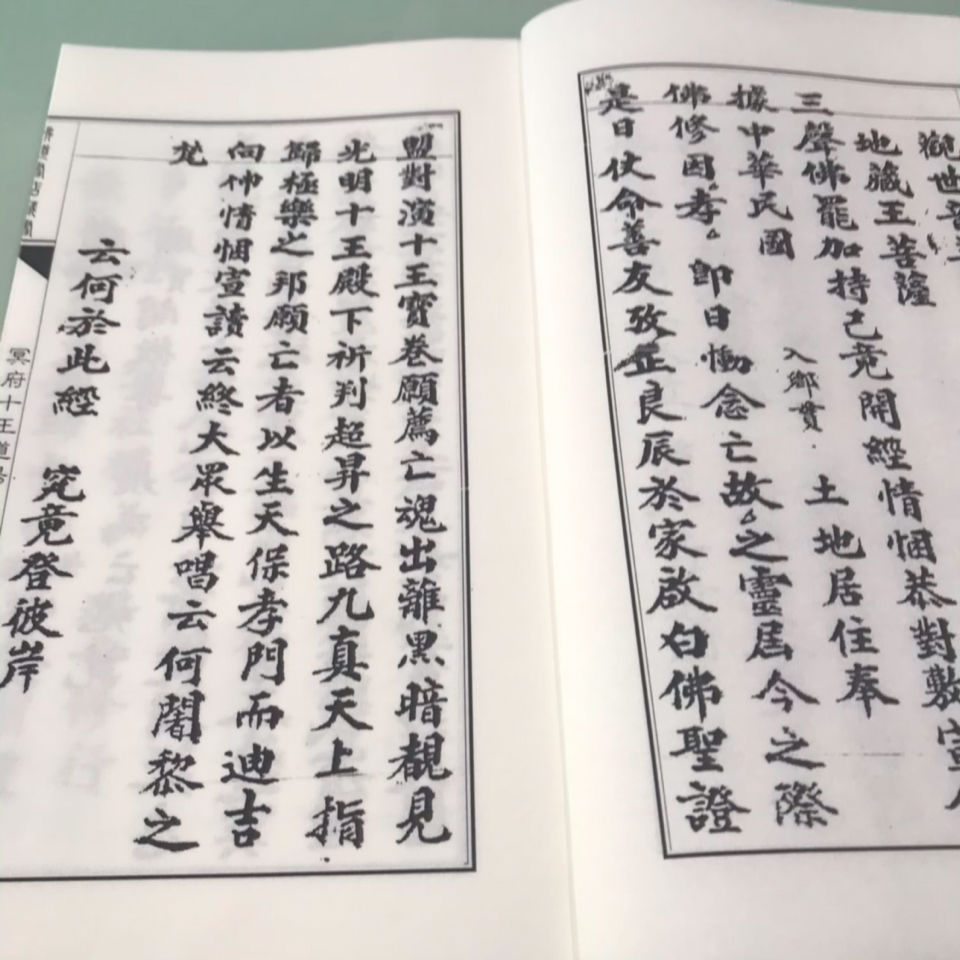 觀世音
地藏王菩薩
三聲佛罷加持已竟開經情悃恭對敷宣
據中華民國 入鄉貫 土地居住奉
佛修因孝 即日慟念亡故之靈居今之際
是日仗命善友孜𤴓良辰於家啟白佛聖證
盟對演十王寶卷願薦亡魂出離黑暗覩見
光明十王殿下祈判超昇之路九真天上指
歸極樂之邦願亡者以生天保孝門而迪吉
向伸情悃宣讀云終大眾舉唱云何闍黎之
梵
云何於此經 究竟登彼岸
冥府十王道場